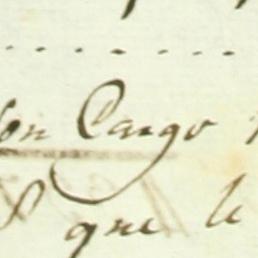 son Cargo
que le